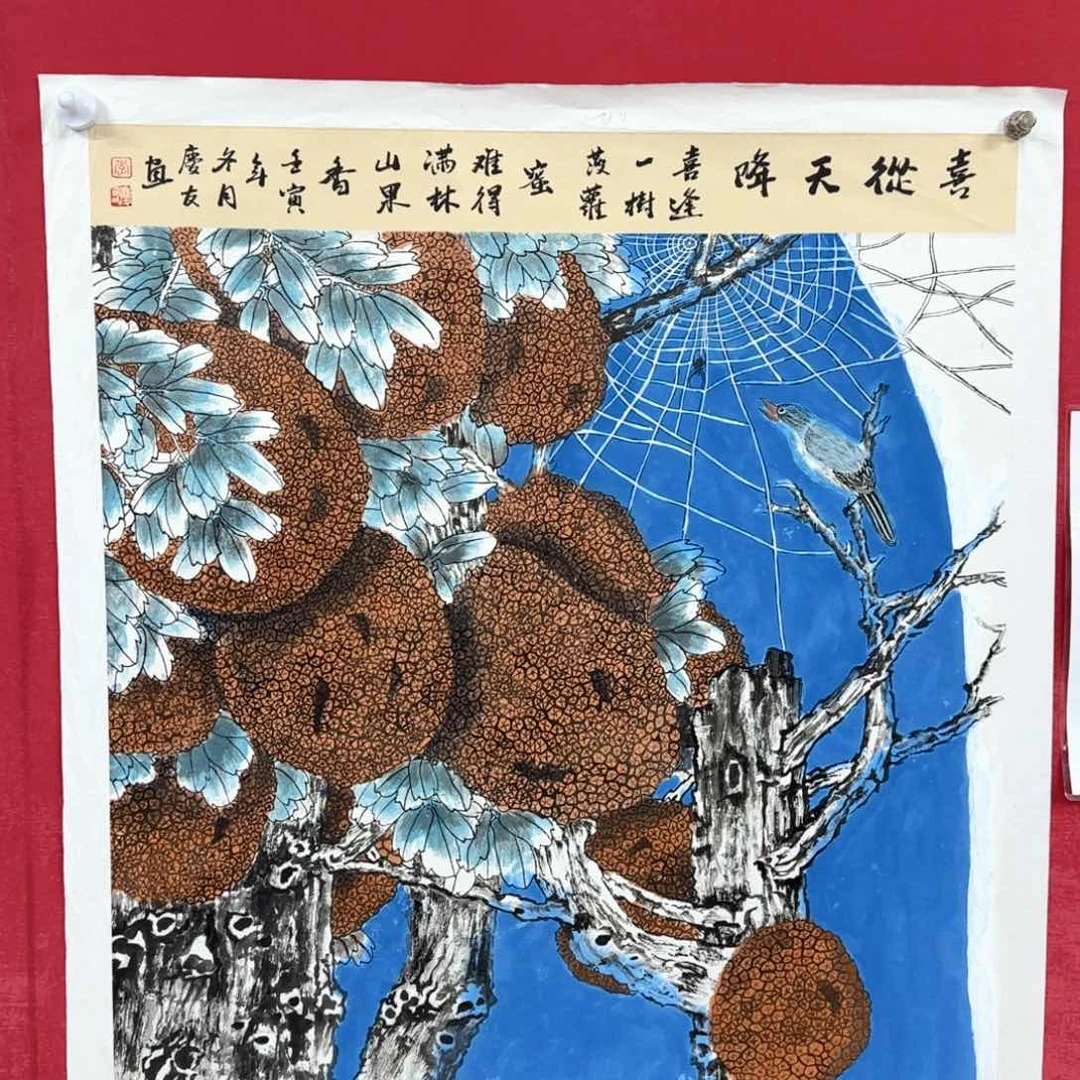 喜從天降
喜逢
一樹
菠蘿
蜜
难得
满林
山果
香
壬寅
年
冬月
慶友
畫